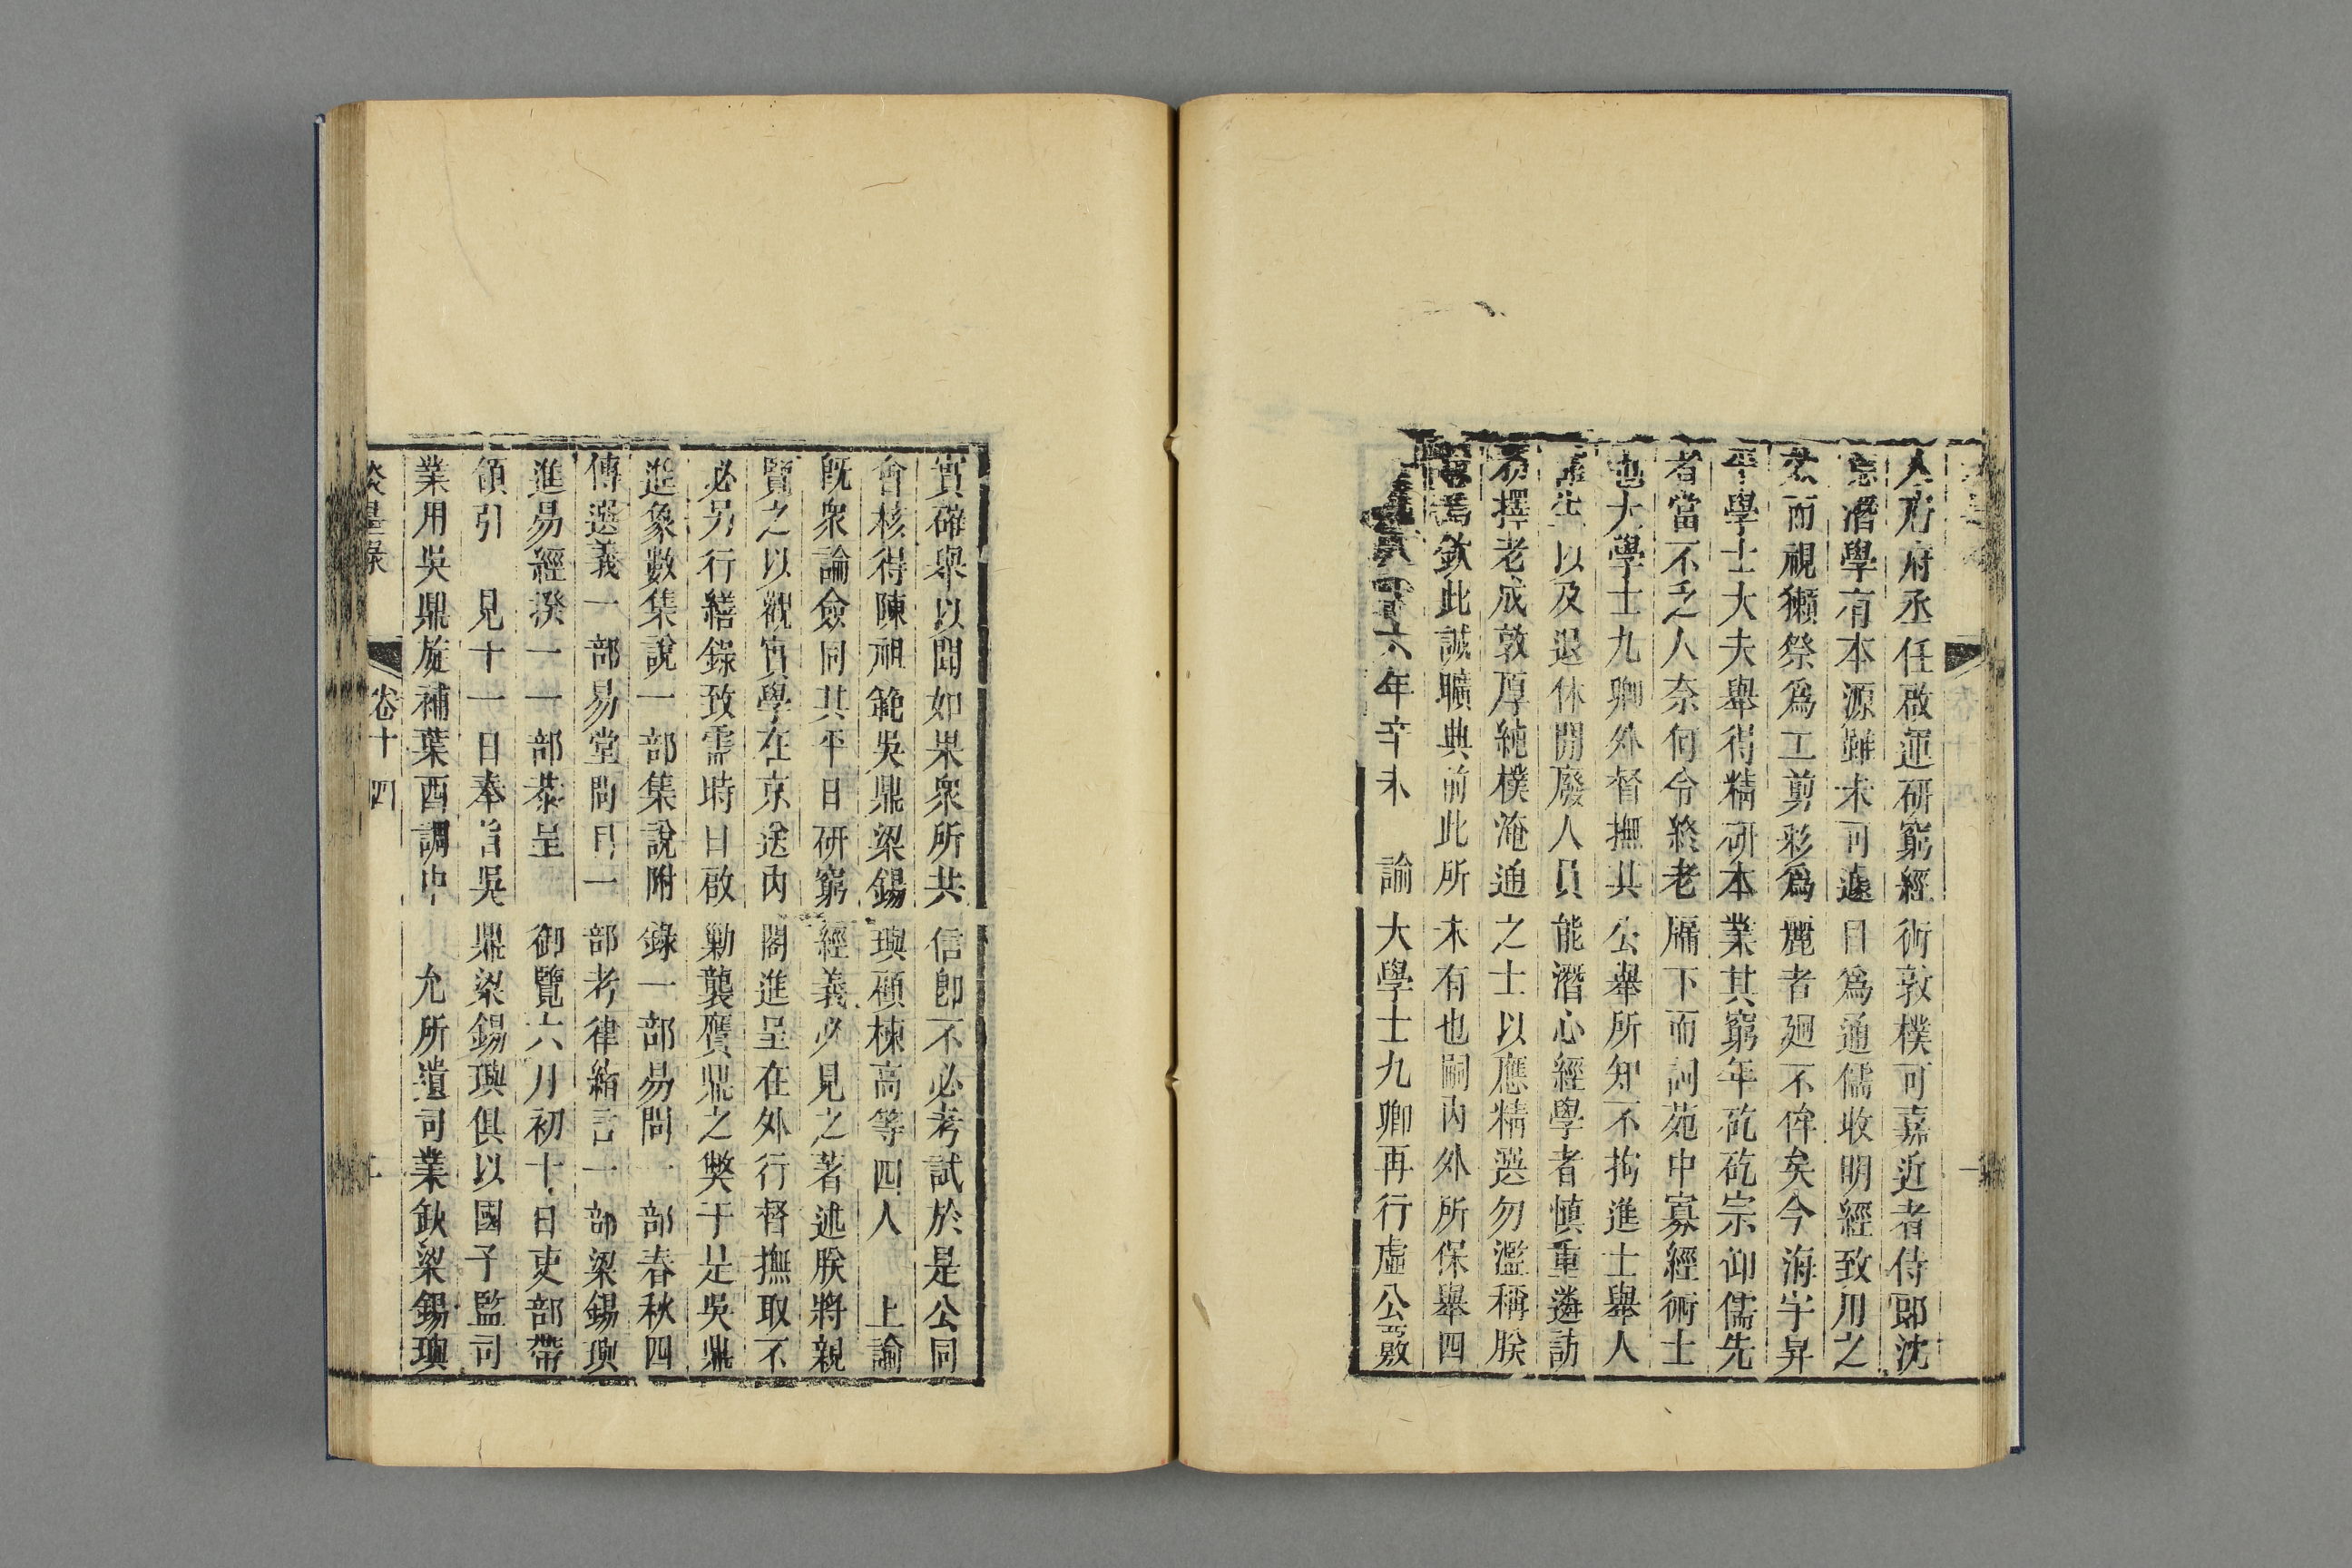 人府府丞任啟運研窮經術敦樸可嘉近者侍郎沈
潛學有本源雖未可遽目為通儒收明經致用之
而視獺祭為工剪彩為麗者迥不侔矣今海宇昇
平學士大夫舉得精研本業其窮年矻矻宗仰儒先
者當不乏人奈何令終老牖下而詞苑中寡經術士
也大學士九卿外督撫其公舉所知不拘進士舉人
諸生以及退休閒廢人員能潛心經學者慎重遴訪
務擇老成敦厚純樸淹通之士以應精選勿濫稱朕
意焉欽此誠曠典前此所未有也嗣內外所保舉四
六年辛未　諭大學士九卿再行虛公覈
實確舉以聞如果眾所共信卽不必考試於是公同
會核得陳祖範吳鼎梁錫璵顧棟高等四人　上諭
旣眾論僉同其平日研窮經義必見之著述朕將親
覽之以覘實學在京送內閣進呈在外行督撫取不
必另行繕錄致需時日啟勦襲贋鼎之獘于是吳鼎
進象數集說一部集說附錄一部易問一部春秋四
傳選義一部易堂問目一部考律緒言一部梁錫璵
進易經揆一一部恭呈　御覽六月初十日吏部帶
領引　見十一日奉旨吳鼎梁錫璵俱以國子監司
業用吳鼎旋補葉酉調中允所遺司業缺梁錫璵
卷十四
二